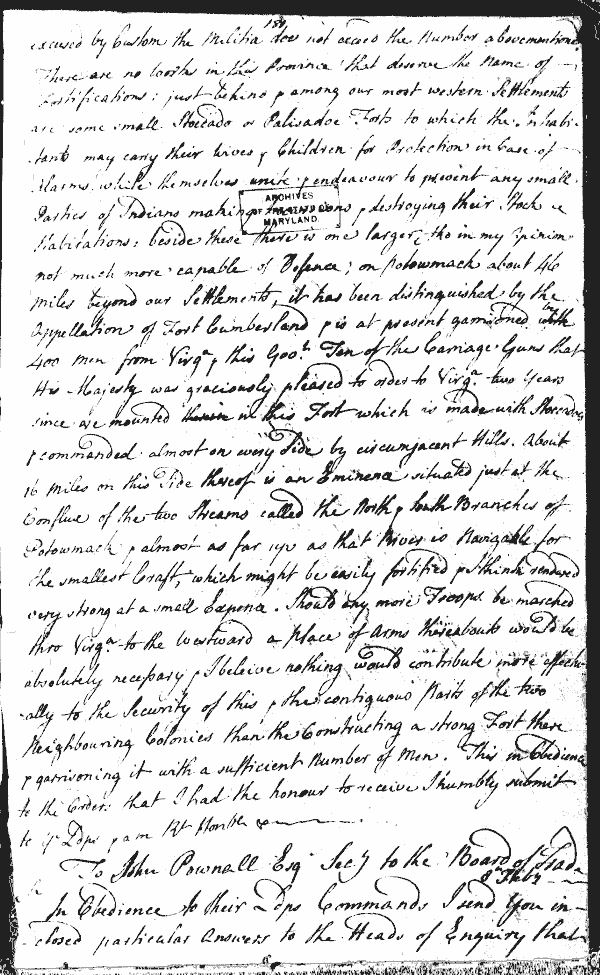 184
excused by Custom the Militia does not exceed the Number abovementioned
There are no works in this Province that deserve the Name of
Fortifications: just behind & among our most western Settlements
are some small Stoccado or Palisadoe Forts to which the Inhabi-
tants may carry their Wives & Children for Protection in Case of
Alarms while themselves unite & endeavour to prevent any small
Parties of Indians making & destroying their Stock
ARCHIVES
OF THE STATE OF
MARYLAND.
Habitations: beside these there is one larger, tho in my Opinion
not much more capable of Defence; on Potowmack about 46
miles beyond our Settlements, it has been distinguished by the
Appellation of Fort Cumberland & is at present garrisoned with
400 men from Virga. & this Govt. Ten of the Carriage Guns that
His Majesty was graciously pleased to order to Virga. two Years
since are mounted therein in this Fort which is made with Stoccadoes
& commanded almost on every Side by circumjacent Hills. About
16 Miles on this Side thereof is an Eminence situated just at the
Conflux of the two Streams called the North & South Branches of
Potowmack & almost as far up as that River is Navigable for
the smallest Craft, which might be easily fortified & I think rendered
very strong at a small Expence. Should any more Troops be marched
thro Virga. to the Westward a Place of Arms thereabouts would be
absolutely necessary & I beleive nothing would contribute more effectu-
ally to the Security of this & the contiguous Parts of the two
Neighbouring Colonies than the Constructing a strong Fort there
& garrisoning it with a sufficient Number of Men. This in Obedience
to the Order that I had the honour to receive I humbly submit
to yr Ldps & am
To John Pownall Esqr. Secy to the Board of Trade
In Obedience to their Ldps Commands I send You in-
closed particular Answers to the Heads of Enquiry that